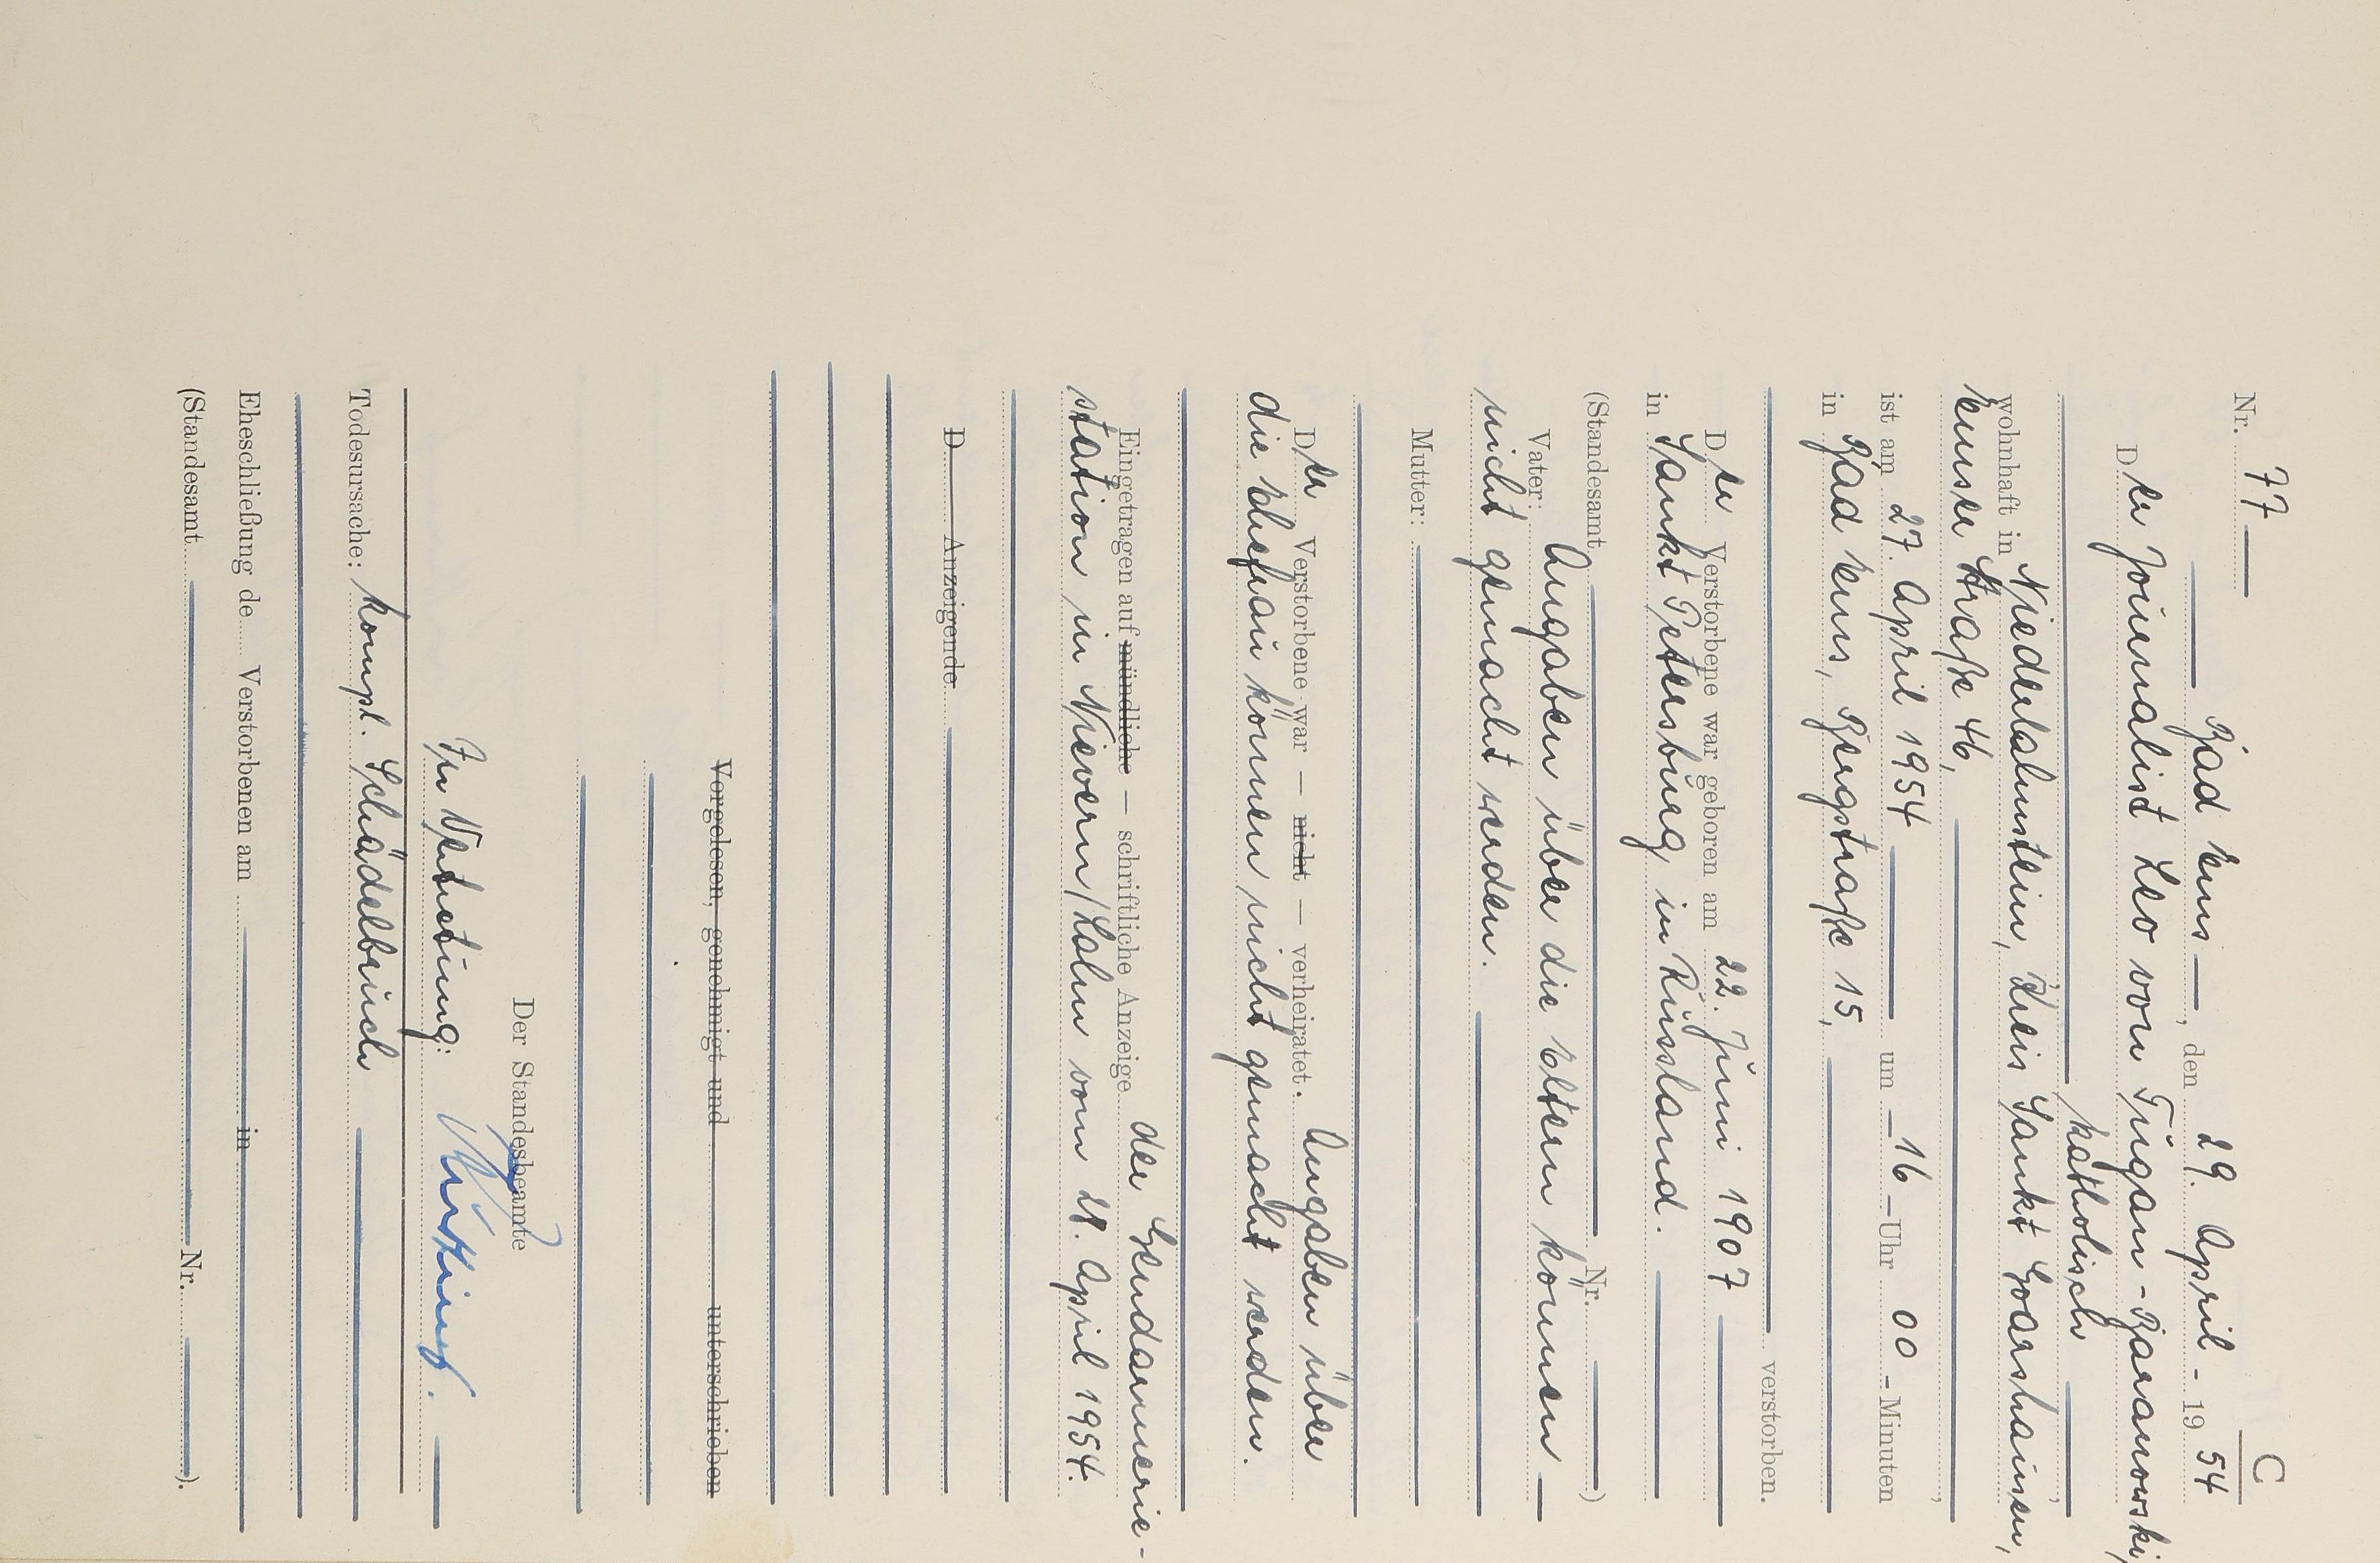 C
Nr. 77
Bad Ems, den 29. April - 19 54
Der Journalist Leo von Tugan-Baranowski,
katholisch,
wohnhaft in Niederlahnstein, Kreis Sankt Goarshausen,
Emser Straße 46,
ist am 27. April 1954 um - 16 - Uhr 00 - Minuten
in Bad Ems, Bergstraße 15,
verstorben.
Der Verstorbene war geboren am 22. Juni 1907
in Sankt Petersburg in Russland.
(Standesamt Nr. )
Vater: Angaben über die Eltern können
nicht gemacht werden.
Mutter:
Der Verstorbene war — nicht — verheiratet. Angaben über
die Ehefrau können nicht gemacht werden.
Eingetragen auf mündliche — schriftliche Anzeige der Gendarmerie-
station in Nievern/Lahn vom 28. April 1954.
D Anzeigende
Vorgelesen, genehmigt und unterschrieben
Der Standesbeamte
In Vertretung:
Todesursache: kompl. Schädelbruch
Eheschließung de Verstorbenen am in
(Standesamt Nr. ).